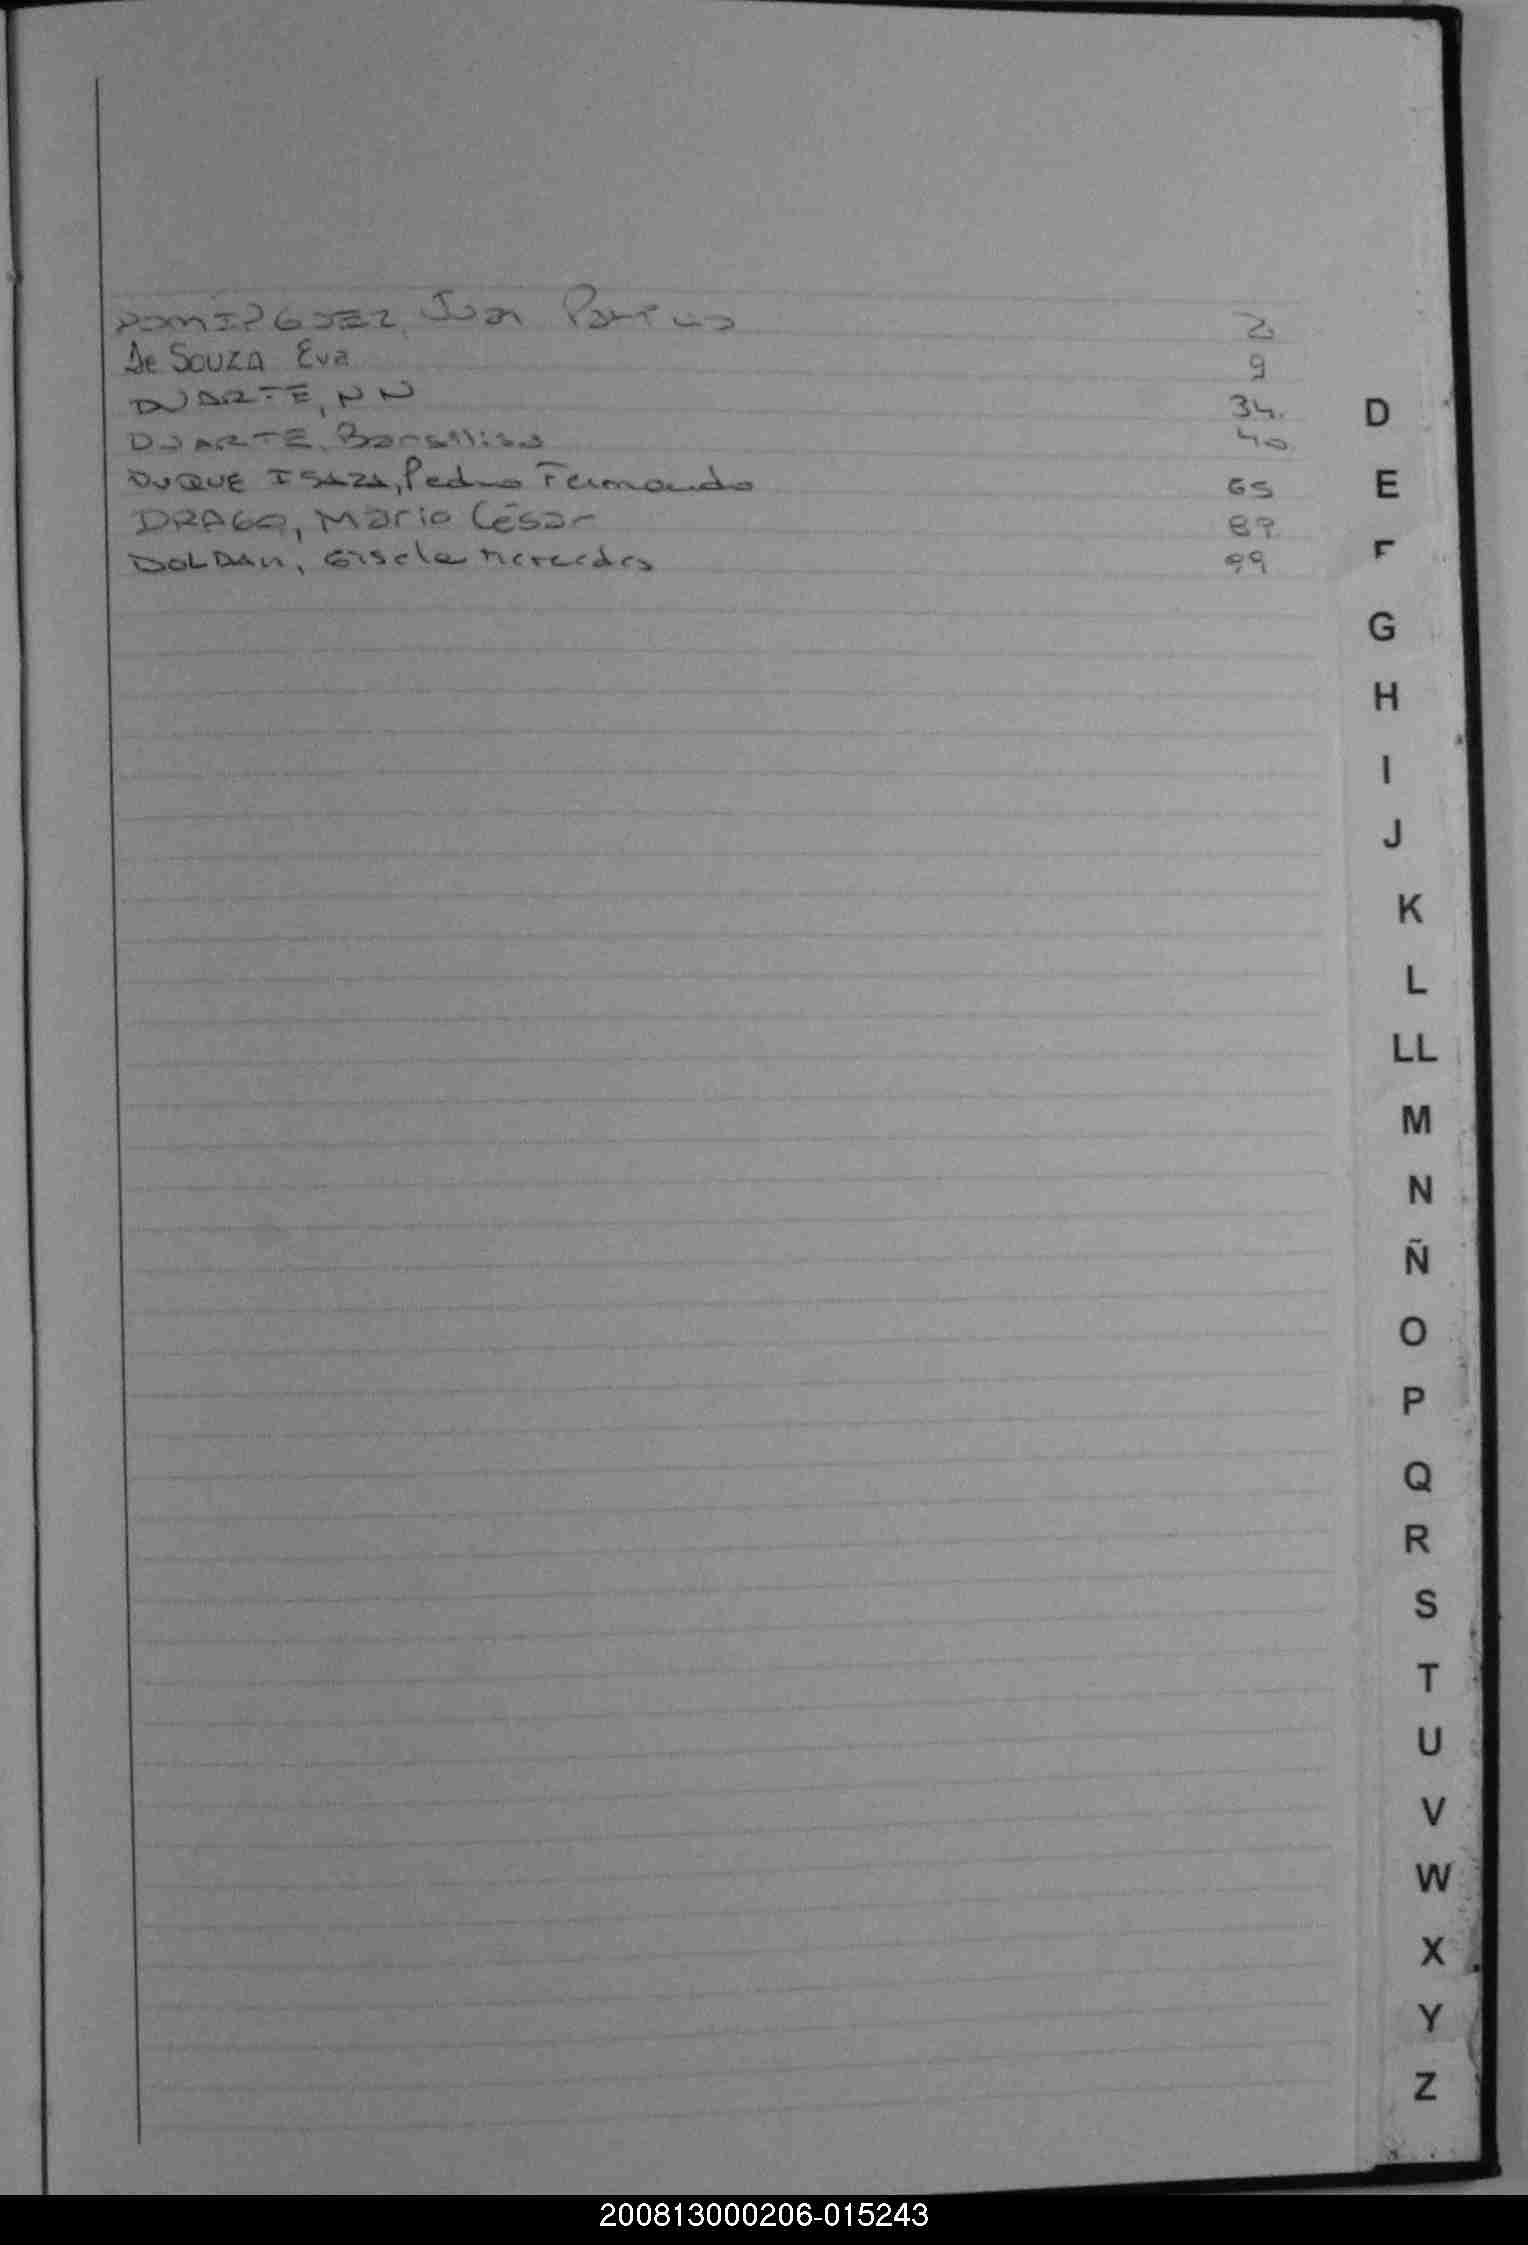 DOMINGUEZ, Juan 2
De Souza Eva 9
DUARTE, NN 34.
DUARTE, 40
DUQUE ISAZA, Pedro Fernando 65
DRAGO, Mario César 89
DOLDAN, Gisela Mercedes 99
D
E
F
G
H
I
J
K
L
LL
M
N
Ñ
O
P
Q
R
S
T
U
V
W
X
Y
Z
200813000206-015243